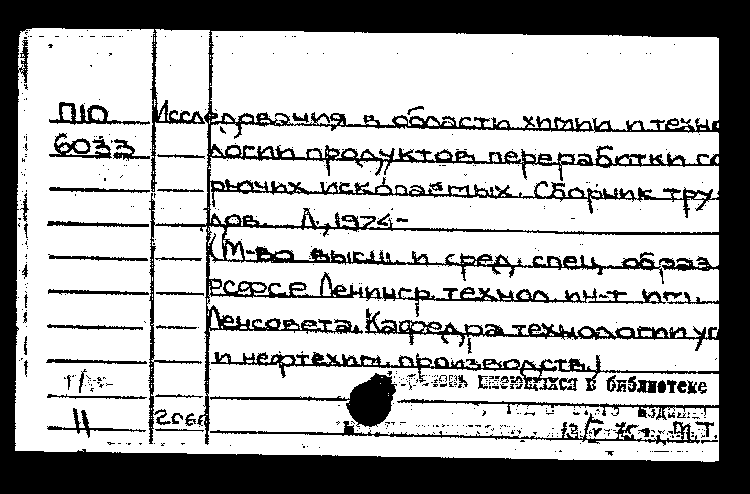 П10 Исследования в области химии и техно
6033 логии продуктов переработки го
рючих ископаемых. Сборник тру
дов. Л., 1974-
(М-во высш. и сред. спец. образ.
РСФСР. Ленингр. технол. ин-т им.
Ленсовета. Кафедра технологии уг
и нефтехим. производств.)
имеющихся в библиотеке
этого издания
11 2066